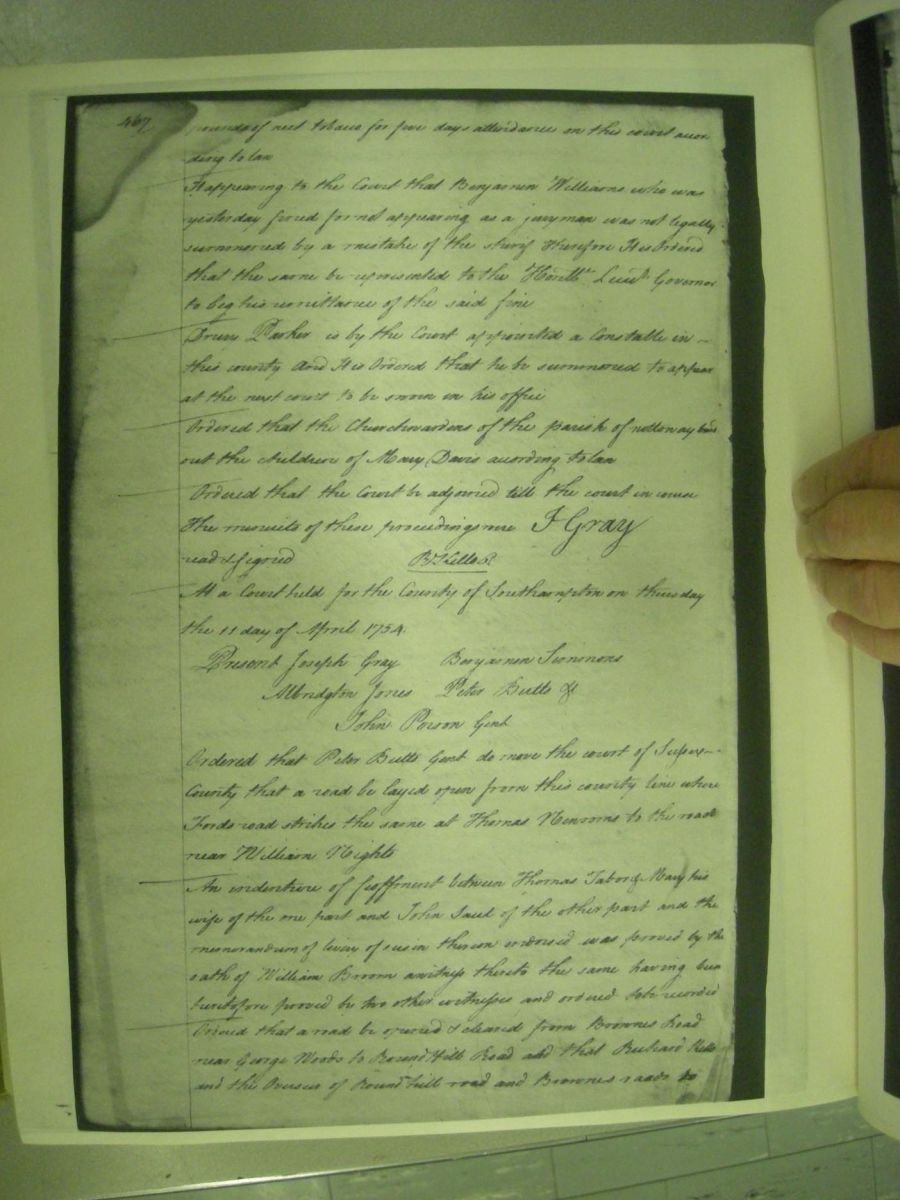 467
pounds of nett tobacco for five days attendance on this court accor
ding to law
It appearing to the Court that Benjamen Williams who was
yesterday fined for not appearing as a juryman was not legally
summoned by a mistake of the sherif therefore It is Ordered
that the same be represented to the Honble. Lieut. Governor
to beg his remittance of the said fine
Drury Parker is by the Court appointed a Constable in
this county And It is Ordered that he be summoned to appear
at the next court to be sworn in his office
Ordered that the Churchwardens of the parish of nottoway bind
out the children of Mary Davis according to law
Ordered that the Court be adjorned till the court in course
The minuits of these proceedings were J Gray
read & signed
At a Court held for the County of Southampton on thursday
the 11 day of April 1754
Present Joseph Gray Benjamen Simmons
Albridgton Jones Peter Butts &
John Person Gent
Ordered that Peter Butts Gent do move the court of Sussex
County that a road be layed open from this county line where
Fords road strikes the same at Thomas to the road
near William Nights
An indenture of feoffment between Thomas Tabor & Mary his
wife of the one part and John of the other part and the
memorandum of livery of seisin thereon endorsed was proved by the
oath of William Broom a witness thereto the same having been
heretofore proved by two other witnesses and ordered to be recorded
Ordered that a road be opened & cleared from Brownes Road
near George Woods to Round Hill Road and that Richard
and the Overseer of Round hill road and Brownes roads do